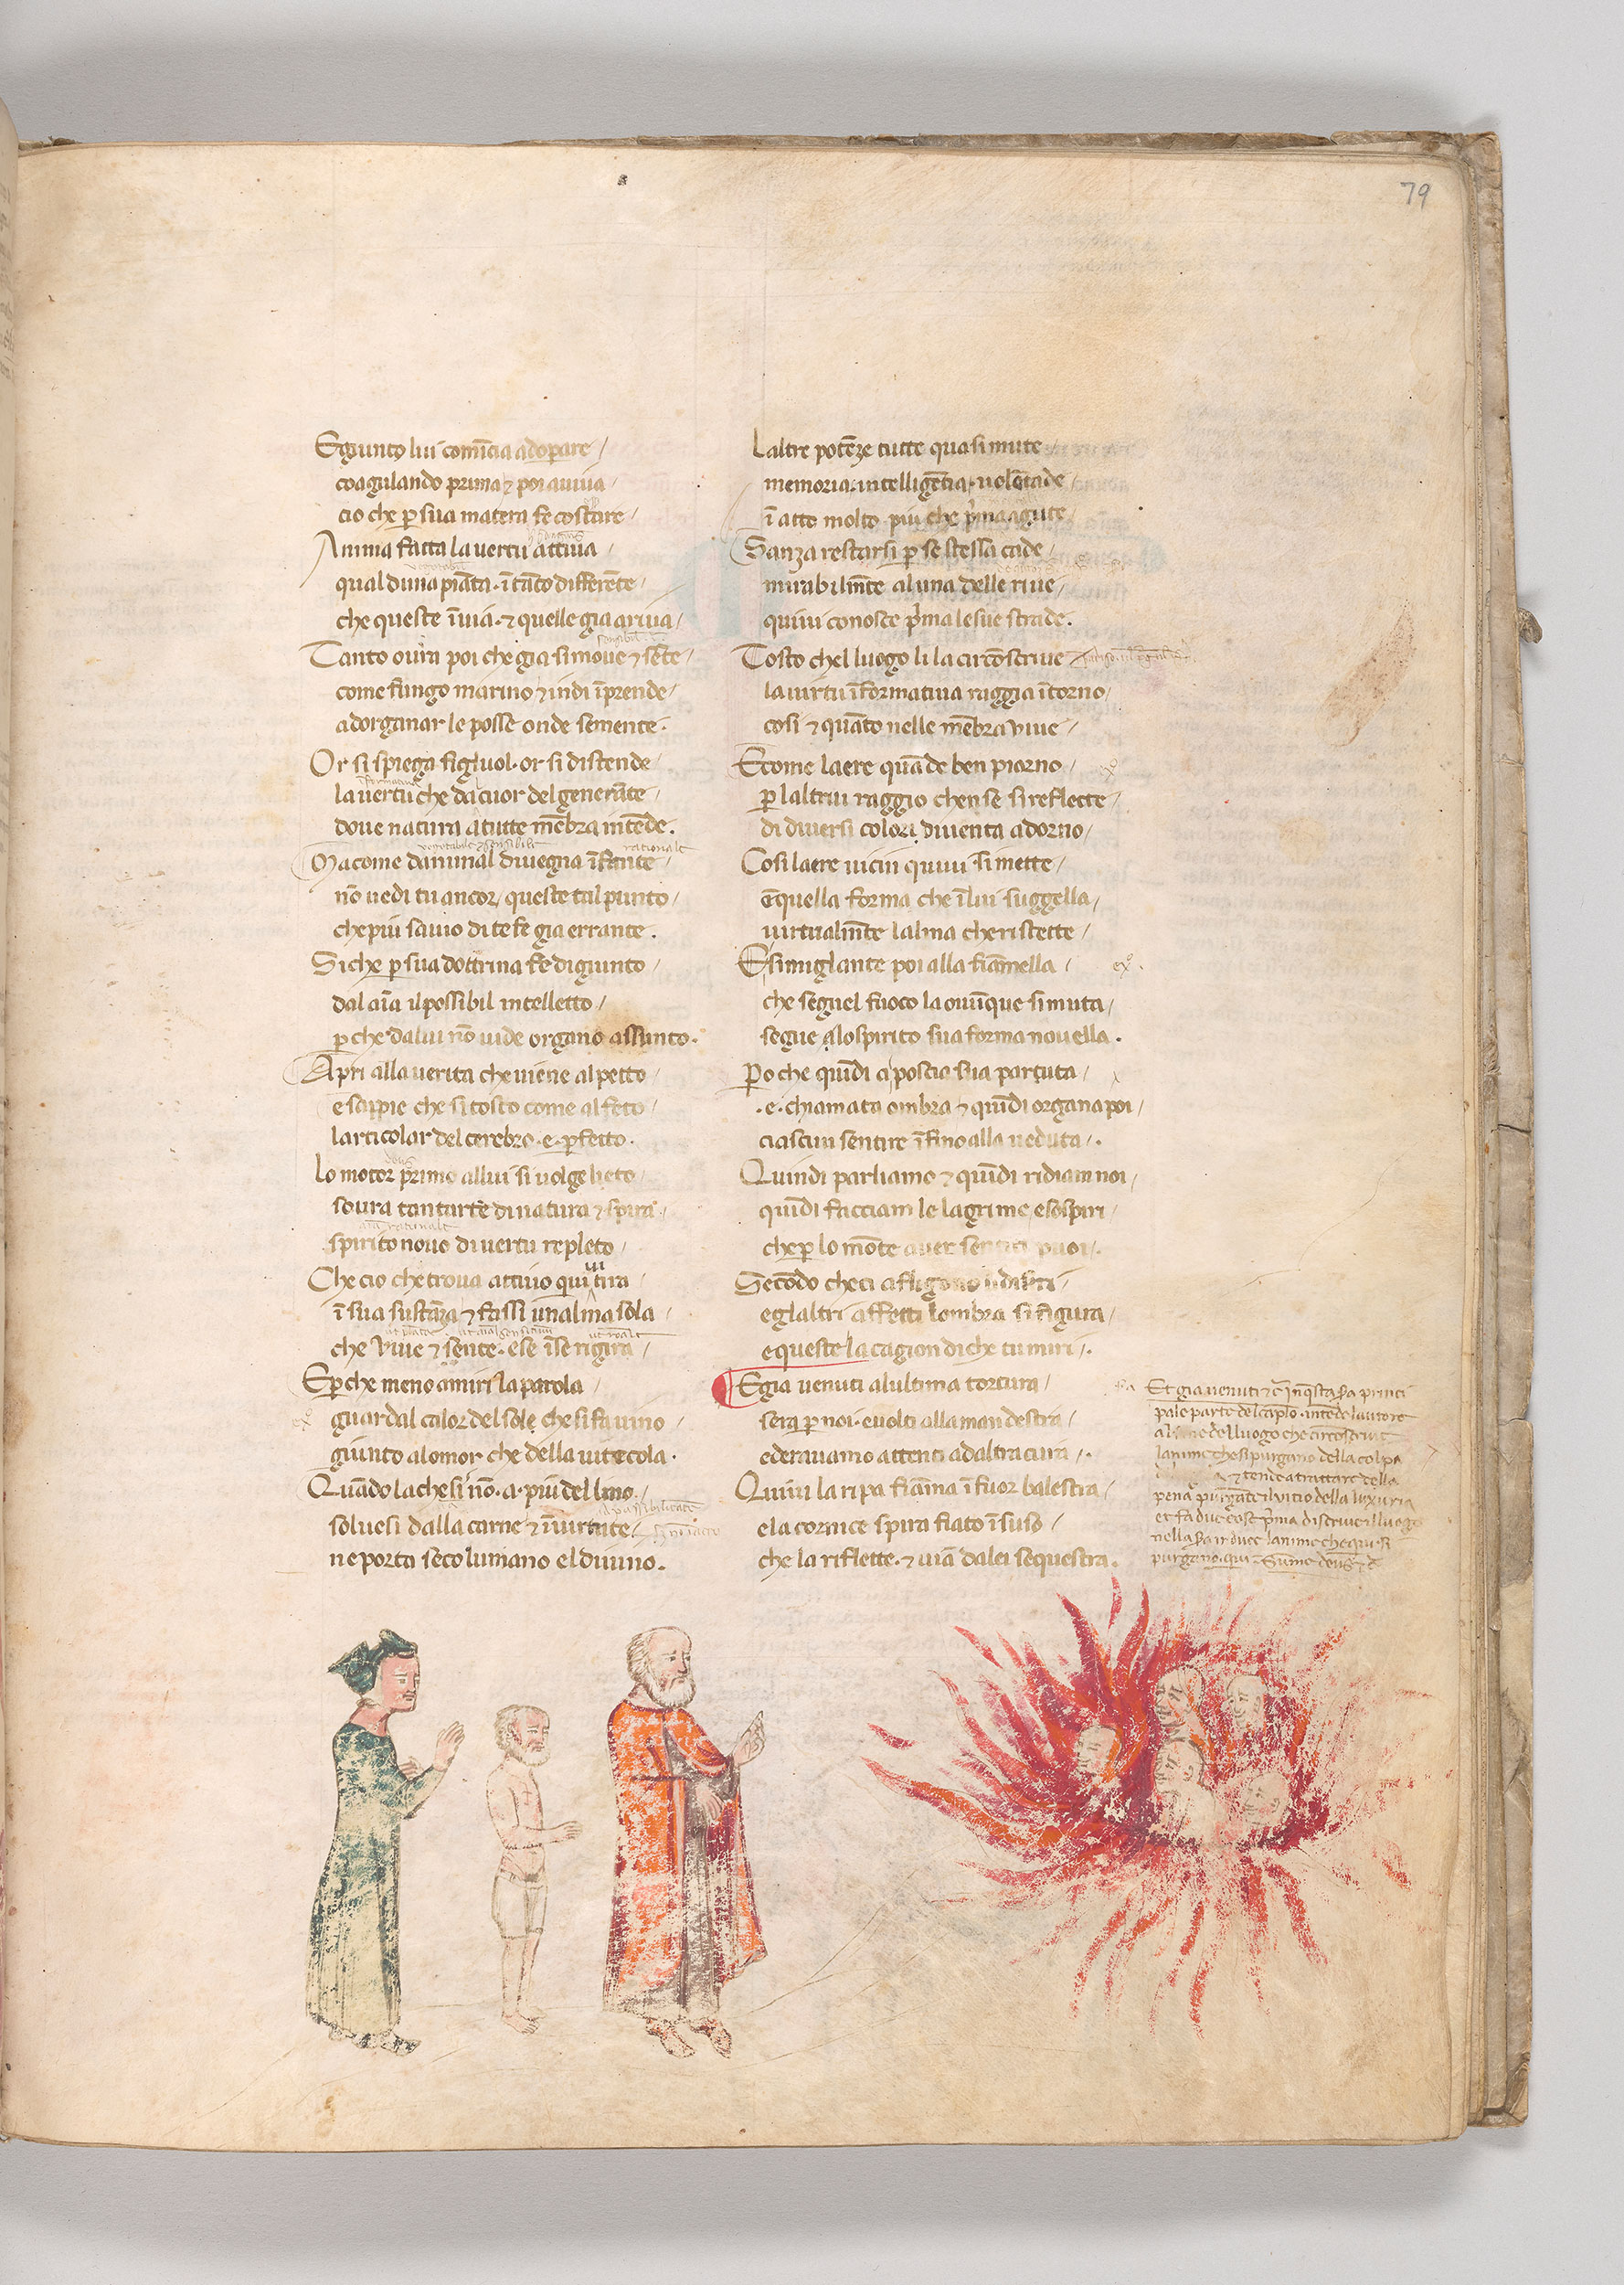 79
Egiunto lui comīcia adoperare
coagulando prima ⁊ poi auiua
cio che ꝑ sua matera fe costare
Anima fatta la uertu attiua
qual duna piāta · ī tāto differēte
che queste īuia · ⁊ quelle gia ariua
Tanto oura poi che gia si moue ⁊ sēte
come fungo marino ⁊ indi īprende
adorganar le posse onde semente ·
Or si spiega figluol · or si distende
la uertu che dal cuor del generāte
doue natura a tutte mēbra intēde .
Ma come danimal diuegna īfante
nō uedi tu ancor, queste tal punto
che piu sauio di te fe gia errante .
Siche ꝑ sua dottrina fe digiunto
dal aīa il possibil intelletto
ꝑche dalui nō uide organo assunto .
Apri alla uerita che uiene al petto
e sappie che si tosto come al feto
larticolar del cerebro · e · ꝑfetto .
Lo motor primo allui si uolge lieto
soura tantarte di natura ⁊ spira
spirito nouo di uertu repleto
Che cio che troua attiuo quiui tira
ī sua sustāza ⁊ fassi unalma sola
che uiue ⁊ sente · ese īse rigira
Eꝑche meno amiri la parola
guardal calor del sole che si fa uino
giunto alomor che della uite cola ·
Quādo lachesi nō · a · piu del lino
soluesi dalla carne ⁊ īuirtute
ne porta seco lumano el diuino .
Laltre potēze tutte quasi mute
memoria · intelligētia · uolōtade
ī atto molto piu che prima agute
Sanza restarsi ꝑ se stessa cade
mirabilmēte aluna delle riue
quiui conosce prima le sue strade .
Tosto chel luogo li la circōscriue
la uirtu īformatiua raggia ītorno
cosi ⁊ quāto nelle mēbra uiue
Ecome laere quāde ben piorno
ꝑ laltrui raggio chense si reflecte
di diuersi colori diuenta adorno
Cosi laere uicin quiui si mette
ēquella forma che ī lui suggella
uirtualmēte lalma che ristette
Esimiglante poi alla fiāmella
che seguel fuoco la ouūque si muta
segue alo spirito sua forma nouella .
Ꝑo che quīdi a poscia sua paruta
· e · chiamata ombra ⁊ quīdi organa poi
ciascun sentire īfino alla ueduta .
Quindi parliamo ⁊ quīdi ridiam noi
quīdi facciam le lagrime esospiri
che ꝑ lo mōte auer sentiti puoi .
Secōdo che ci afligono idisiri
eglaltri affetti lombra si figura
equeste la cagion di che tu miri .
Egia uenuti alultima tortura
sera ꝑ noi · euolti alla man destra
ederauamo attenti ad altra cura .
Quiui la ripa fiāma īfuor balestra
ela cornice spira fiato īsuso
che la riflette · ⁊ uia dalei sequestra .
Et gia uenuti ⁊c̄ Inq̄sta
pale parte del caplo · intēde lautore
del luogo che circoscriue
lanime che si purgano della colpa
⁊ tende a trattare della
pena purgāte il uitio della luxuria